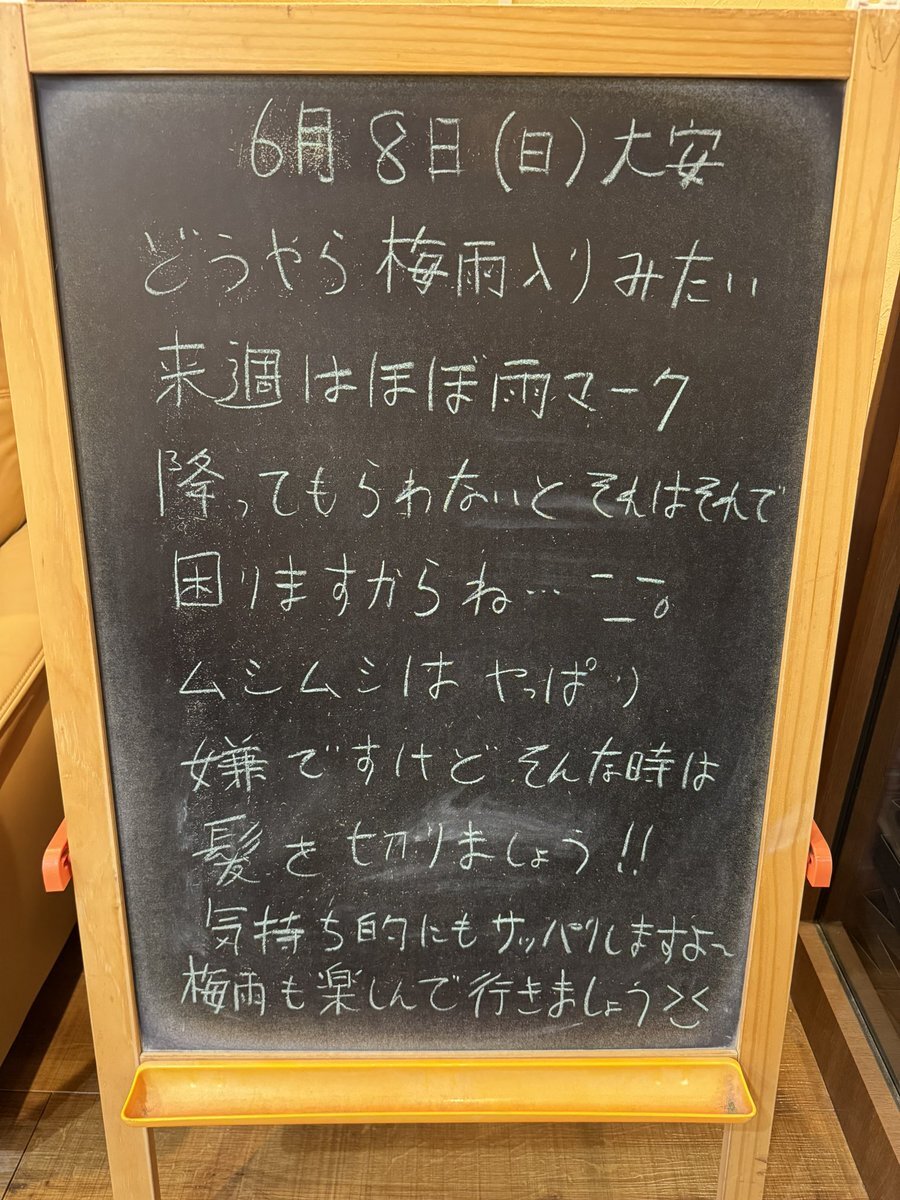 6月8日(日)大安
どうやら梅雨入りみたい
来週はほぼ雨マーク
降ってもらわないとそれはそれで
困りますからね…
ムシムシはやっぱり
嫌ですけどそんな時は
髪を切りましょう!!
気持ち的にもサッパリしますよ〜
梅雨も楽しんで行きましょう